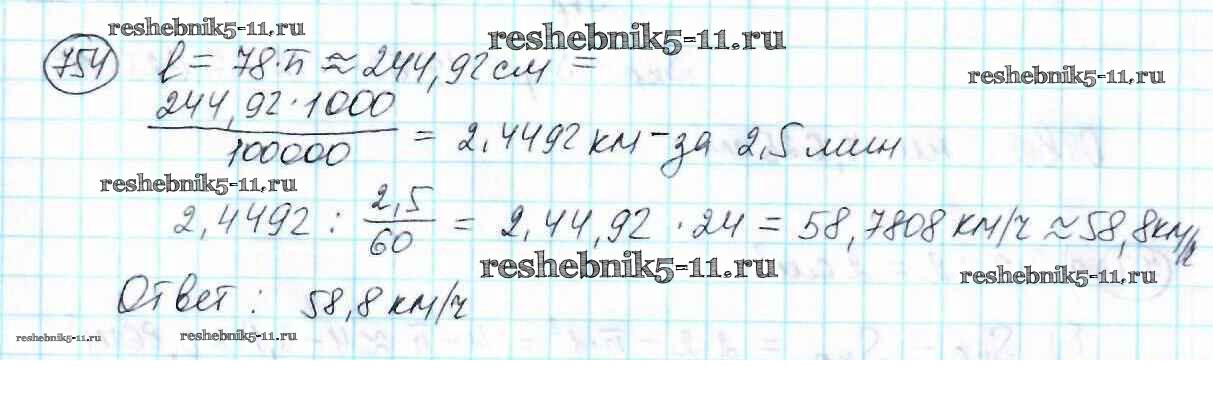 reshebnik5-11.ru
reshebnik5-11.ru
754 l = 78·π ≈ 244,92 см =
reshebnik5-11.ru
244,92·1000
100000
= 2,4492 км - за 2,5 мин
reshebnik5-11.ru
2,4492 : 2,5/60 = 2,44,92 · 24 = 58,7808 км/ч ≈ 58,8 км/ч
reshebnik5-11.ru
reshebnik5-11.ru
Ответ : 58,8 км/ч
reshebnik5-11.ru
reshebnik5-11.ru